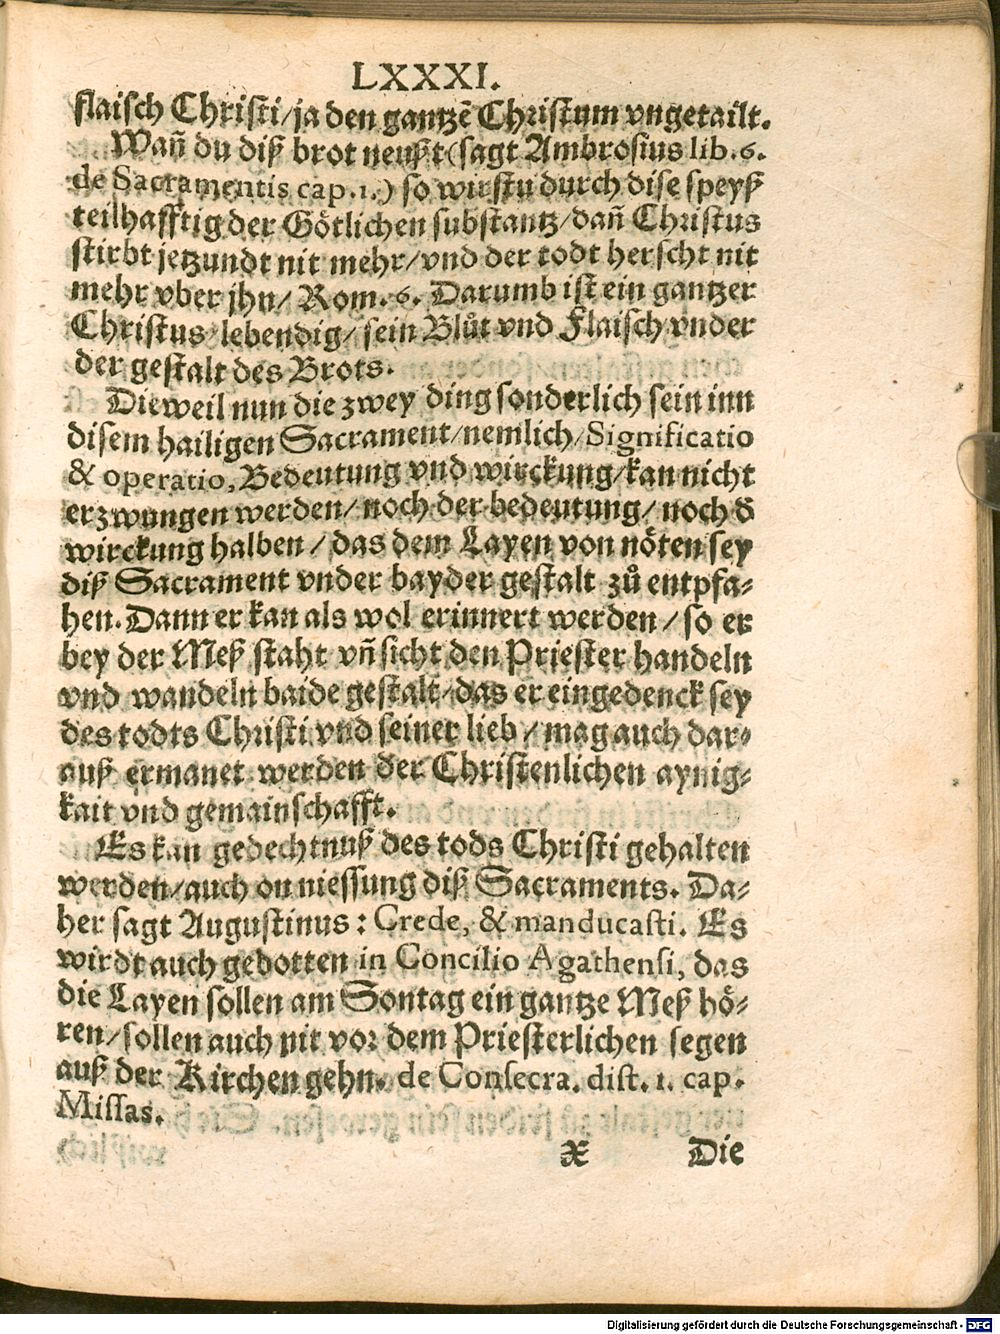 LXXXI.
flaisch Christi/ja den gantzē Christum vngetailt.
Wañ du diß brot neußt(sagt Ambrosius lib.6.
de Sacramentis cap.1.) so wirstu durch dise speyß
teilhafftig der Götlichen substantz/dañ Christus
stirbt jetzundt nit mehr/vnd der todt herscht nit
mehr vber jhn/ Rom.6. Darumb ist ein gantzer
Christus lebendig/ sein Blůt vnd Flaisch vnder
der gestalt des Brots.
Dieweil nun die zwey ding sonderlich sein inn
disem hailigen Sacrament/nemlich/Significatio
& operatio, Bedeutung vnd wirckung/kan nicht
erzwungen werden/ noch der bedeutung/ noch d̕
wirckung halben / das dem Layen von nöten sey
diß Sacrament vnder bayder gestalt zů entpfa-
hen. Dann er kan als wol erinnert werden / so er
bey der Meß staht vñ sicht den Priester handeln
vnd wandeln baide gestalt/das er eingedenck sey
des todts Christi vnd seiner lieb / mag auch dar-
auß ermanet werden der Christenlichen aynig-
kait vnd gemainschafft.
Es kan gedechtnuß des tods Christi gehalten
werden/auch on niessung diß Sacraments. Da-
her sagt Augustinus: Crede, & manducasti. Es
wirdt auch gebotten in Concilio Agathensi, das
die Layen sollen am Sontag ein gantze Meß hö-
ren/sollen auch nit vor dem Priesterlichen segen
auß der Kirchen gehn. de Consecra. dist. 1. cap.
Missas.
X Die
Digitalisierung gefördert durch die Deutsche Forschungsgemeinschaft - DFG